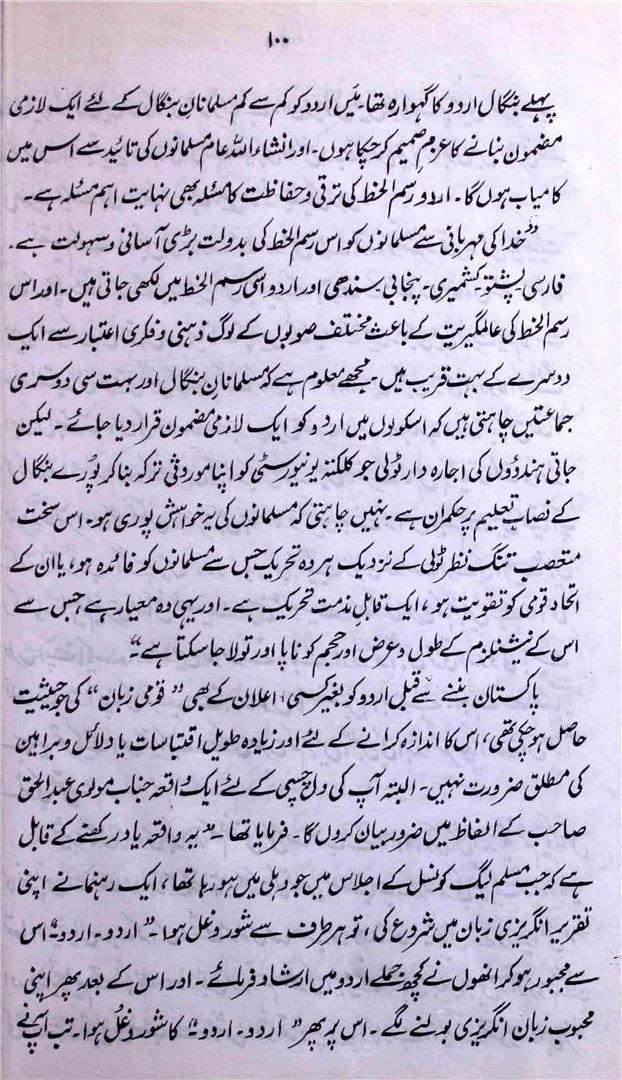 ۱۰۰
پہلے بنگال اردو کا گہوارہ تھا۔ میں اردو کو کم سے کم مسلمانانِ بنگال کے لئے ایک لازمی
مضمون بنانے کا عزمِ صمیم کر چکا ہوں۔ اور انشاء اللہ عام مسلمانوں کی تائید سے اس میں
کامیاب ہوں گا۔ اردو رسم الخط کی ترقی و حفاظت کا مسئلہ بھی نہایت اہم مسئلہ ہے۔
”خدا کی مہربانی سے مسلمانوں کو اس رسم الخط کی بدولت بڑی آسانی و سہولت ہے۔
فارسی پشتو کشمیری۔ پنجابی سندھی اور اردو اسی رسم الخط میں لکھی جاتی ہیں۔ اور اس
رسم الخط کی عالمگیریت کے باعث مختلف صوبوں کے لوگ ذہنی و فکری اعتبار سے ایک
دوسرے کے بہت قریب ہیں۔ مجھے معلوم ہے کہ مسلمانانِ بنگال اور بہت سی دوسری
جماعتیں چاہتی ہیں کہ اسکولوں میں اردو کو ایک لازمی مضمون قرار دیا جائے۔ لیکن
جاتی ہندوؤں کی اجارہ دار ٹولی جو کلکتہ یونیورسٹی کو اپنا موروثی ترکہ بنا کر پورے بنگال
کے نصابِ تعلیم پر حکمران ہے۔ نہیں چاہتی کہ مسلمانوں کی یہ خواہش پوری ہو۔ اس سخت
متعصب تنگ نظر ٹولی کے نزدیک ہر وہ تحریک جس سے مسلمانوں کو فائدہ ہو، یا ان کے
اتحاد قومی کو تقویت ہو، ایک قابلِ مذمت تحریک ہے۔ اور یہی وہ معیار ہے جس سے
اس کے نیشنلزم کے طول و عرض اور حجم کو ناپا اور تولا جا سکتا ہے“
پاکستان بننے سے قبل اردو کو بغیر کسی اعلان کے بھی ”قومی زبان“ کی جو حیثیت
حاصل ہو چکی تھی، اس کا اندازہ کرانے کے لئے اور زیادہ طویل اقتباسات یا دلائل و براہین
کی مطلق ضرورت نہیں۔ البتہ آپ کی دل چسپی کے لئے ایک واقعہ جناب مولوی عبدالحق
صاحب کے الفاظ میں ضرور بیان کروں گا۔ فرمایا تھا۔ ”یہ واقعہ یاد رکھنے کے قابل
ہے کہ جب مسلم لیگ کونسل کے اجلاس میں جو دہلی میں ہو رہا تھا، ایک رہنما نے اپنی
تقریر انگریزی زبان میں شروع کی، تو ہر طرف سے شور و غل ہوا۔ ”اردو۔ اردو۔“ اس
سے مجبور ہو کر انھوں نے کچھ جملے اردو میں ارشاد فرمائے۔ اور اس کے بعد پھر اپنی
محبوب زبان انگریزی بولنے لگے۔ اس پر پھر ”اردو۔ اردو۔“ کا شور و غل ہوا۔ تب آپ نے